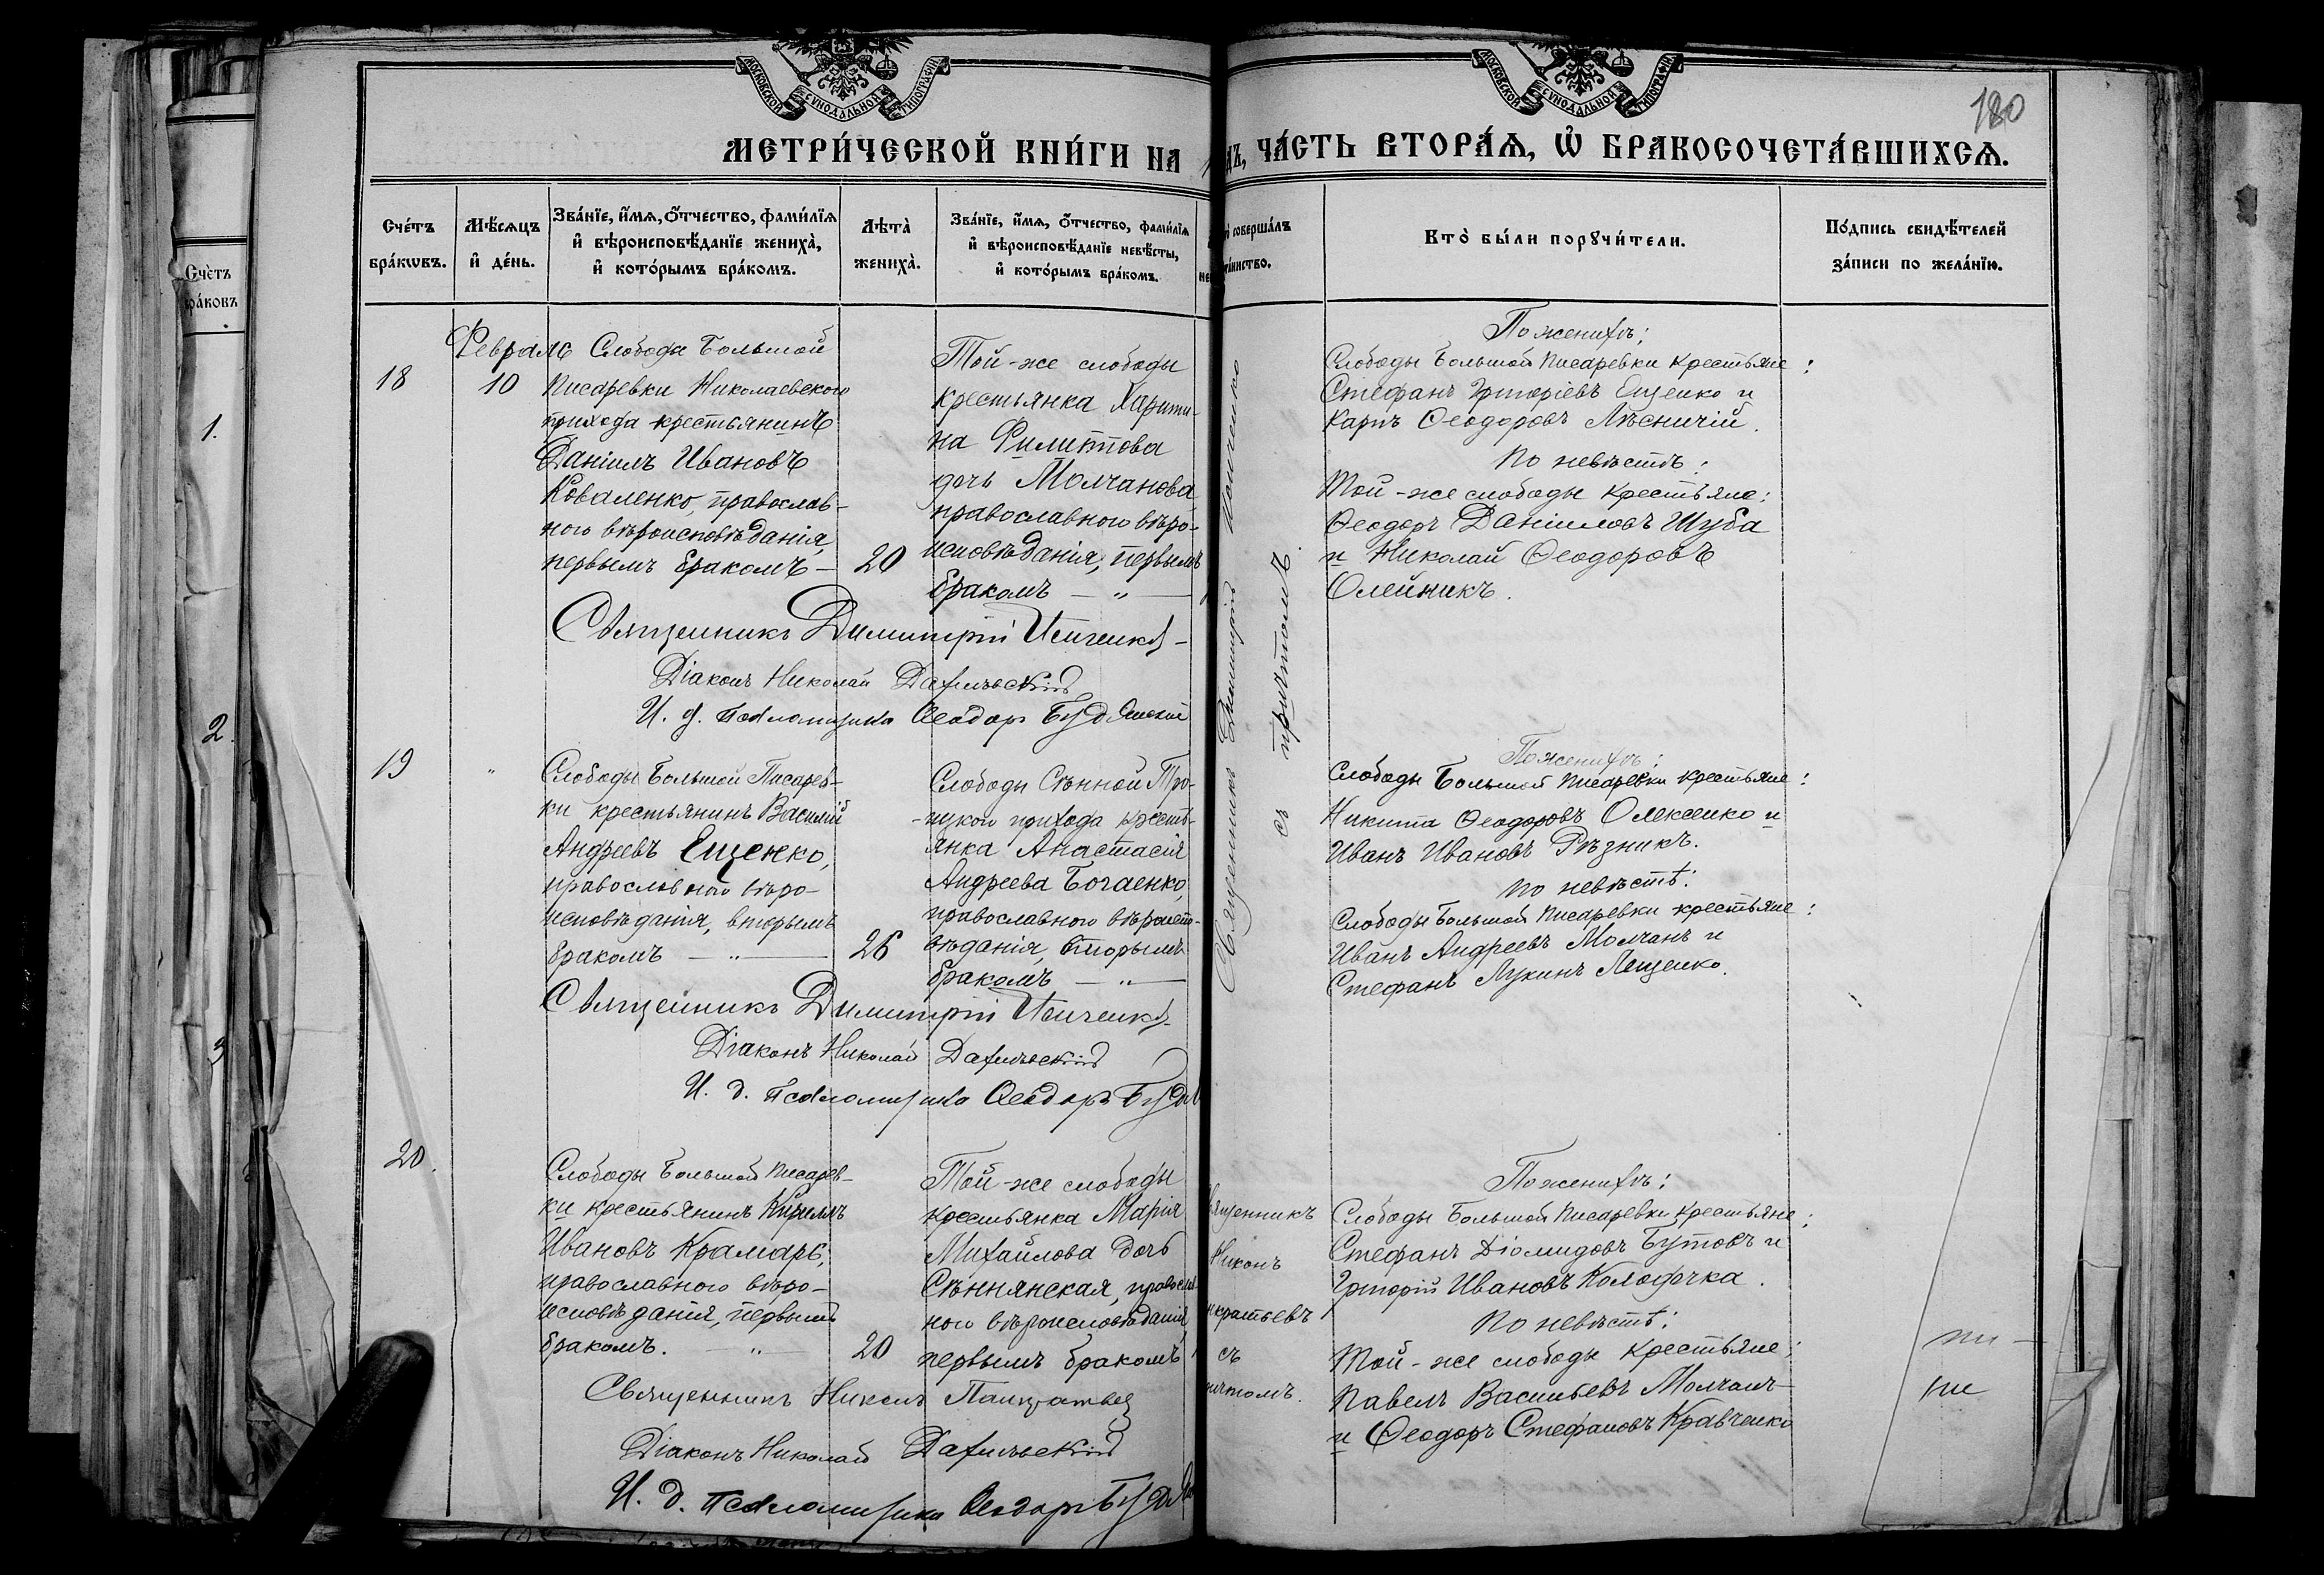 МОСКОВСКОЙ СѴНОДАЛЬНОЙ ТИПОГРАФІИ
МОСКОВСКОЙ СѴНОДАЛЬНОЙ ТИПОГРАФІИ
180
МЕТРИ́ЧЕСКОЙ КНИ́ГИ НА
ЧА́СТЬ ВТОРА́Ѧ, Ѿ БРАКОСОЧЕТА́ВШИХСѦ.
Сче́тъ бра́кѡвъ.
Мѣ́сѧцъ и҆ де́нь.
Зва́нїе, и҆́мѧ, ѻ҆́тчество, фами́лїѧ
и҆ вѣроисповѣ́данїе жениха̀,
и҆ кото́рымъ бра́комъ.
Лѣта̀ жениха̀.
Зва́нїе, и҆́мѧ, ѻ҆́тчество, фами́лїѧ
и҆ вѣроисповѣ́данїе невѣ́сты,
и҆ кото́рымъ бра́комъ.
соверша́лъ
Кто̀ бы́ли порꙋчи́тели.
По́дпись свидѣ́телей
за́писи по жела́нїю.
Сче́тъ
бра́ковъ
1.
2.
3
18
Февраль
10
Слободы Большой
Писаревки Николаевского
прихода крестьянинъ
Даніилъ Ивановъ
Коваленко, православ-
ного вѣроисповѣданія,
первымъ бракомъ —
20
Той-же слободы
крестьянка Харити-
на Филиппова
дочь Молчанова
православного вѣро-
исповѣданія, первымъ
бракомъ — " —
Священникъ Димитрій
съ причтомъ.
По женихѣ:
Слободы Большой Писаревки крестьяне:
Стефанъ Григоріевъ Ещенко и
Карпъ Ѳеодоровъ Лѣсничій.
По невѣстѣ:
Той-же слободы крестьяне:
Ѳеодоръ Даніиловъ Шуба
и Николай Ѳеодоровъ
Олейникъ.
Священникъ Димитрій
Діаконъ Николай
И. д. Псаломщика Ѳеодоръ
19
"
Слободы Большой Писарев-
ки крестьянинъ Василій
Андреевъ Ещенко,
православного вѣро-
исповѣданія, вторымъ
бракомъ — " —
26
Слободы Сѣнной Тро-
ицкого прихода кресть-
янка Анастасія
Андреева Богаенко,
православного вѣроиспо-
вѣданія, вторымъ
бракомъ — " —
По женихѣ:
Слободы Большой Писаревки крестьяне:
Никита Ѳеодоровъ Олексенко и
Иванъ Ивановъ Рѣзникъ.
По невѣстѣ:
Слободы Большой Писаревки крестьяне:
Иванъ Андреевъ Молчанъ и
Стефанъ Лукинъ Лещенко.
Священникъ Димитрій
Діаконъ Николай
И. д. Псаломщика Ѳеодоръ
20.
Слободы Большой Писарев-
ки крестьянинъ Кириллъ
Ивановъ Крамарь,
православного вѣро-
исповѣданія, первымъ
бракомъ. — " —
20
Той-же слободы
крестьянка Марія
Михайлова дочь
Сѣннянская, православ-
ного вѣроисповѣданія,
первымъ бракомъ
Никонъ
съ
По женихѣ:
Слободы Большой Писаревки крестьяне:
Стефанъ Діомидовъ Бутовъ и
Григорій Ивановъ Колодочка.
По невѣстѣ:
Той-же слободы крестьяне:
Павелъ Васильевъ Молчанъ
и Ѳеодоръ Стефановъ Кравченко
Священникъ Никонъ Панкратьев
Діаконъ Николай
И. д. Псаломщика Ѳеодоръ